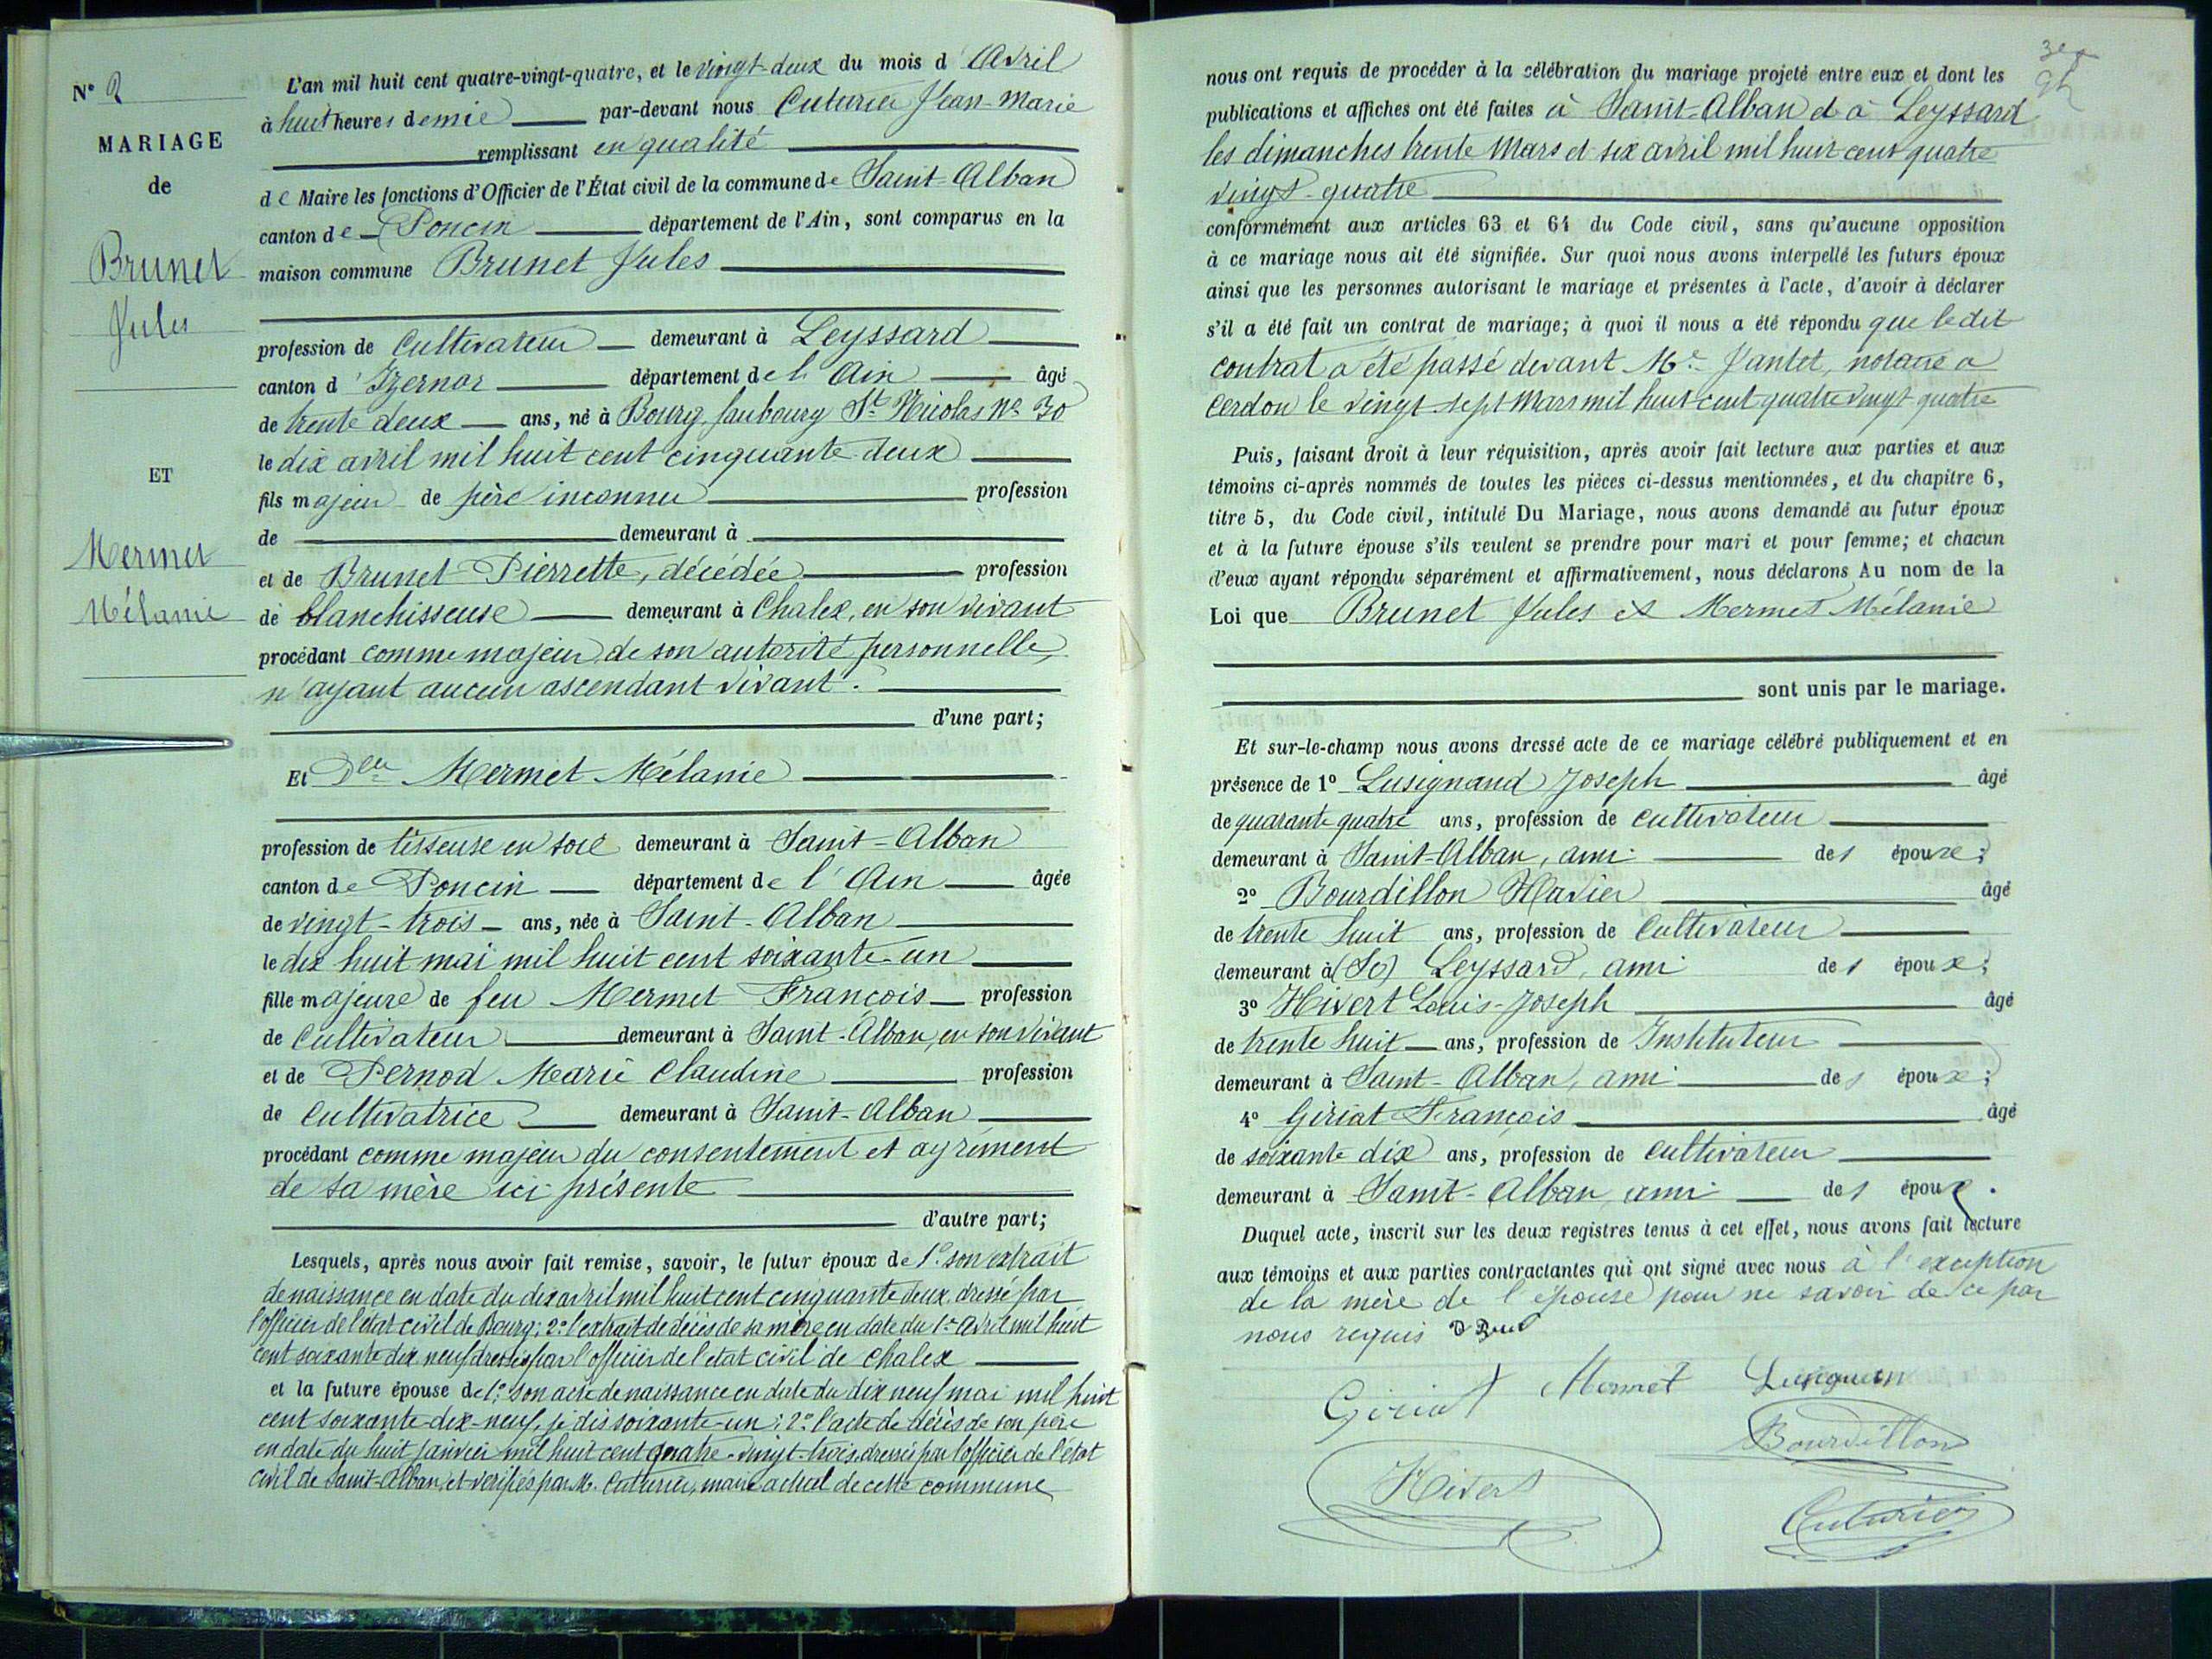 N° 2
MARIAGE
de
Brunet
Jules
ET
Mermet
Mélanie
L'an mil huit cent quatre-vingt-quatre, et le vingt-deux du mois d'Avril
à huit heures demie par-devant nous Cuturier Jean-Marie
remplissant en qualité
de Maire les fonctions d'Officier de l'État civil de la commune de Saint-Alban
canton de Poncin département de l'Ain, sont comparus en la
maison commune Brunet Jules
profession de Cultivateur demeurant à Leyssard
canton d'Izernor département de l'Ain âgé
de trente deux ans, né à Bourg, faubourg St Nicolas No 30
le dix avril mil huit cent cinquante deux
fils majeur de père inconnu profession
de demeurant à
et de Brunet Pierrette, décédée profession
de blanchisseuse demeurant à Chalex, en son vivant
procédant comme majeur de son autorité personnelle,
n'ayant aucun ascendant vivant.
d'une part;
Et Delle Mermet Mélanie
profession de tisseuse en soie demeurant à Saint-Alban
canton de Poncin département de l'Ain âgée
de vingt-trois ans, née à Saint-Alban
le dix huit mai mil huit cent soixante-un
fille majeure de feu Mermet François profession
de Cultivateur demeurant à Saint-Alban, en son vivant
et de Pernod Marie Claudine profession
de Cultivatrice demeurant à Saint-Alban
procédant comme majeur du consentement et agrément
de sa mère ici présente
d'autre part;
Lesquels, après nous avoir fait remise, savoir, le futur époux de 1° son extrait
de naissance en date du dix avril mil huit cent cinquante deux, dressé par
l'officier de l'état civil de Bourg; 2° l'extrait de décès de sa mère en date du 1er Avril mil huit
cent soixante dix neuf dressés par l'officier de l'état civil de Chalex
et la future épouse de 1° son acte de naissance en date du dix neuf mai mil huit
cent soixante-dix-neuf, je dis soixante-un; 2° l'acte de décès de son père
en date du huit janvier mil huit cent quatre-vingt-trois, dressés par l'officier de l'état
civil de Saint-Alban, et vérifiés par M. Cuturier, maire actuel de cette commune
nous ont requis de procéder à la célébration du mariage projeté entre eux et dont les
publications et affiches ont été faites à Saint-Alban et à Leyssard
les dimanches trente Mars et six avril mil huit cent quatre
vingt-quatre
conformément aux articles 63 et 64 du Code civil, sans qu'aucune opposition
à ce mariage nous ait été signifiée. Sur quoi nous avons interpellé les futurs époux
ainsi que les personnes autorisant le mariage et présentes à l'acte, d'avoir à déclarer
s'il a été fait un contrat de mariage; à quoi il nous a été répondu que ledit
contrat a été passé devant Me Jantet, notaire à
Cerdon le vingt sept Mars mil huit cent quatre vingt quatre
Puis, faisant droit à leur réquisition, après avoir fait lecture aux parties et aux
témoins ci-après nommés de toutes les pièces ci-dessus mentionnées, et du chapitre 6,
titre 5, du Code civil, intitulé Du Mariage, nous avons demandé au futur époux
et à la future épouse s'ils veulent se prendre pour mari et pour femme; et chacun
d'eux ayant répondu séparément et affirmativement, nous déclarons Au nom de la
Loi que Brunet Jules et Mermet Mélanie
sont unis par le mariage.
Et sur-le-champ nous avons dressé acte de ce mariage célébré publiquement et en
présence de 1° Lusignand Joseph âgé
de quarante quatre ans, profession de cultivateur
demeurant à Saint-Alban, ami des époux;
2° Bourdillon Xavier âgé
de trente huit ans, profession de Cultivateur
demeurant à (So) Leyssard, ami des époux;
3° Hivert Louis-Joseph âgé
de trente huit ans, profession de Instituteur
demeurant à Saint-Alban, ami des époux;
4° Giriat François âgé
de soixante dix ans, profession de cultivateur
demeurant à Saint-Alban, ami des époux.
Duquel acte, inscrit sur les deux registres tenus à cet effet, nous avons fait lecture
aux témoins et aux parties contractantes qui ont signé avec nous à l'exception
de la mère de l'épouse pour ne savoir de ce par
nous requis
Giriat Mermet
Bourdillon
Hivert
Cuturier